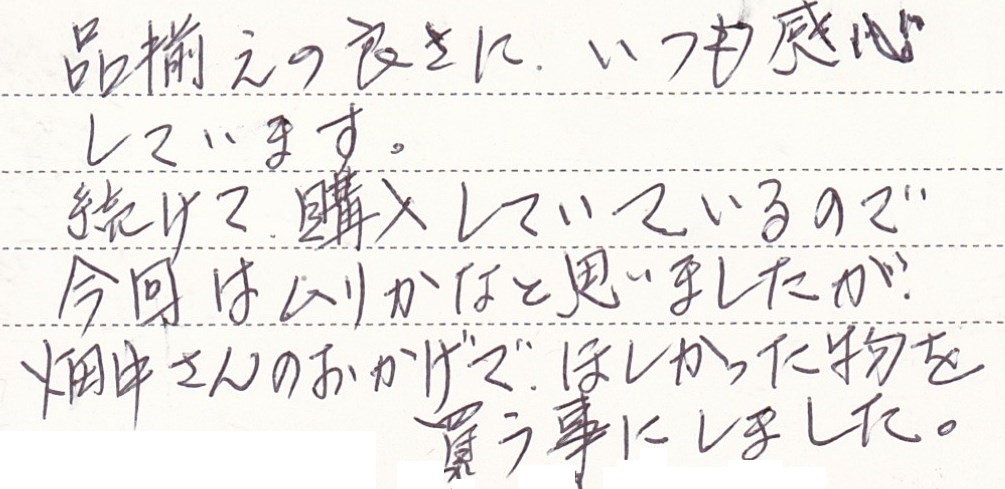 品揃えの良さに、いつも感心
しています。
続けて、購入していているので
今回はムリかなと思いましたが、
畑中さんのおかげで、ほしかった物を
買う事にしました。